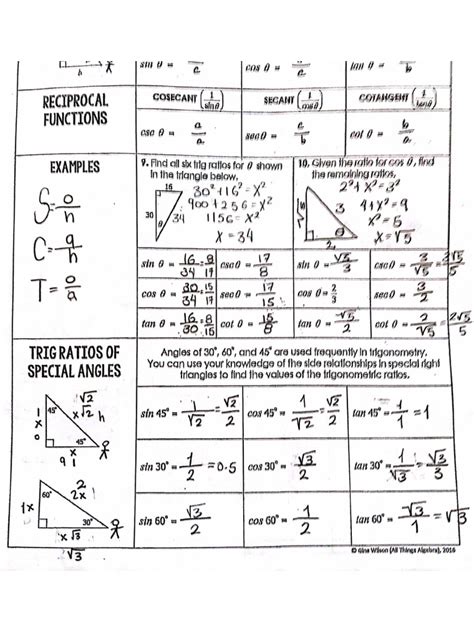 sin θ = c
cos θ = c
tan θ = b
b
RECIPROCAL FUNCTIONS
COSECANT (1/sinθ)
SECANT (1/cosθ)
COTANGENT (1/tanθ)
csc θ = a/c
sec θ = c/b
cot θ = b/a
EXAMPLES
S = o/h
C = a/h
T = o/a
9. Find all six trig ratios for θ shown
in the triangle below.
16
30
34
θ
30² + 16² = x²
900 + 256 = x²
1156 = x²
x = 34
10. Given the ratio for cos θ, find
the remaining ratios.
2² + x² = 3²
4 + x² = 9
x² = 5
x = √5
3
θ
2
sin θ = 16/34 = 8/17
csc θ = 17/8
sin θ = √5/3
csc θ = 3/√5 = 3√5/5
cos θ = 30/34 = 15/17
sec θ = 17/15
cos θ = 2/3
sec θ = 3/2
tan θ = 16/30 = 8/15
cot θ = 15/8
tan θ = √5/2
cot θ = 2/√5 = 2√5/5
TRIG RATIOS OF
SPECIAL ANGLES
Angles of 30°, 60°, and 45° are used frequently in trigonometry.
You can use your knowledge of the side relationships in special right
triangles to find the values of the trigonometric ratios.
√2
1
x
o
45°
x√2 h
45°
x
a 1
sin 45° = 1/√2 = √2/2
cos 45° = 1/√2 = √2/2
tan 45° = 1/1 = 1
sin 30° = 1/2 = 0.5
cos 30° = √3/2
tan 30° = 1/√3 = √3/3
2
1x
60°
2x
30°
x√3
√3
sin 60° = √3/2
cos 60° = 1/2
tan 60° = √3/1 = √3
© Gina Wilson (All Things Algebra), 2016